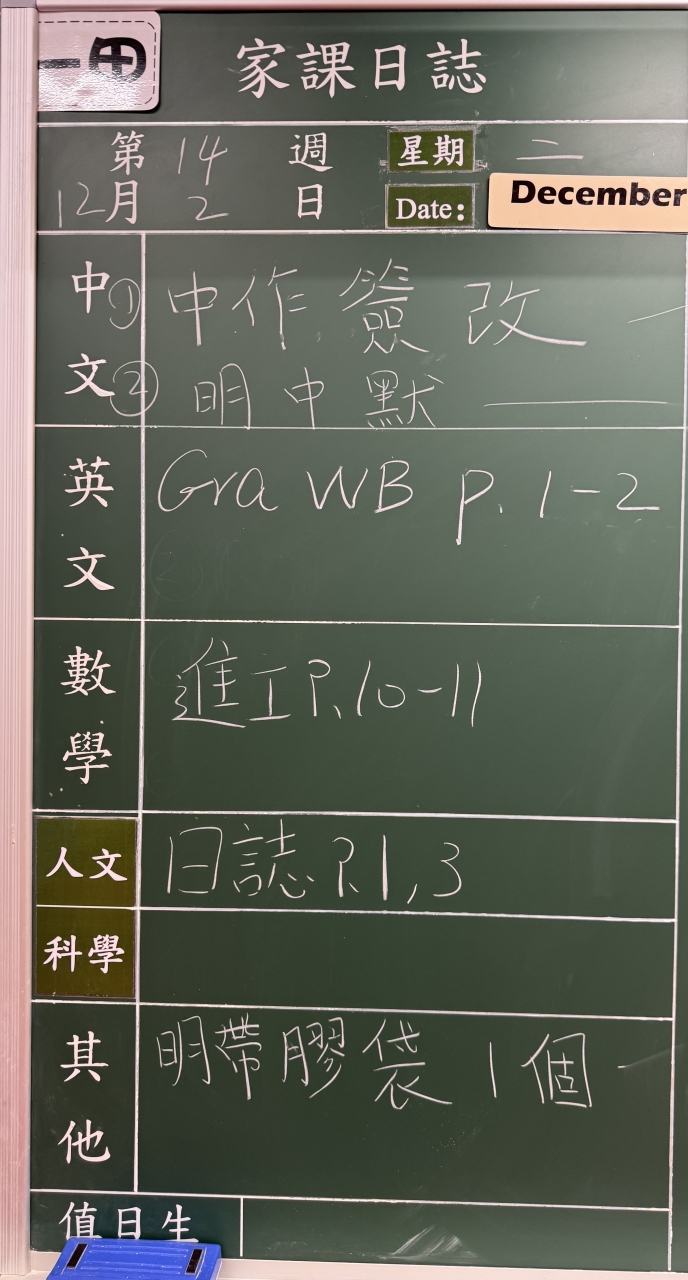 一甲
家課日誌
第 14 週 星期 二
12月 2 日 Date: December
中文 ① 中作簽改
② 明中默
英文 Gra WB p. 1-2
數學 進工P.10-11
人文 日誌P.1,3
科學
其他 明帶膠袋1個
值日生